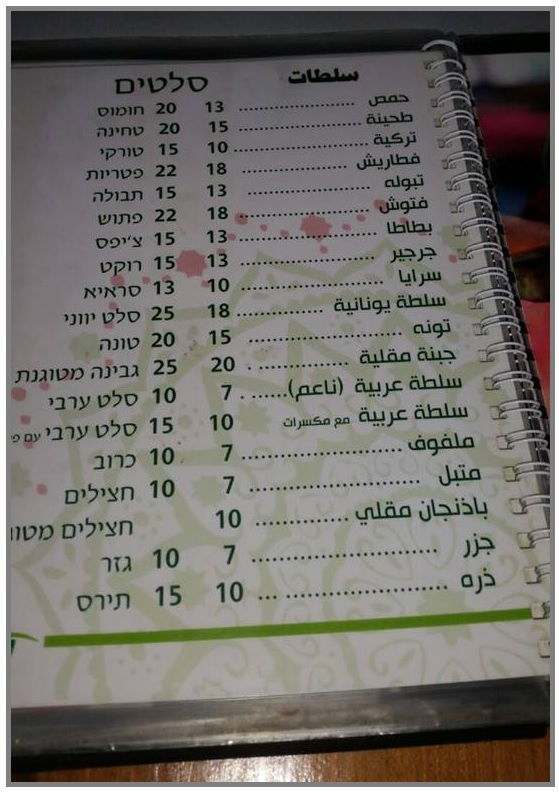 سلطات סלטים
حمص ........................ 13 20 חומוס
طحينة ........................ 15 20 טחינה
تركية ........................ 10 15 טורקי
فطاريش ........................ 18 22 פטריות
تبوله ........................ 13 15 תבולה
فتوش ........................ 18 22 פתוש
بطاطا ........................ 13 15 צ'יפס
جرجير ........................ 13 15 רוקט
سرايا ........................ 10 13 סראיא
سلطة يونانية .................. 18 25 סלט יווני
تونه ........................ 15 20 טונה
جبنة مقلية .................. 20 25 גבינה מטוגנת
سلطة عربية (ناعم)...... 7 10 סלט ערבי
سلطة عربية مع مكسرات 10 15 סלט ערבי עם
ملفوف ........................ 7 10 כרוב
متبل ........................ 7 10 חצילים
باذنجان مقلي .................. 10 חצילים
جزر ........................ 7 10 גזר
ذره ........................ 10 15 תירס